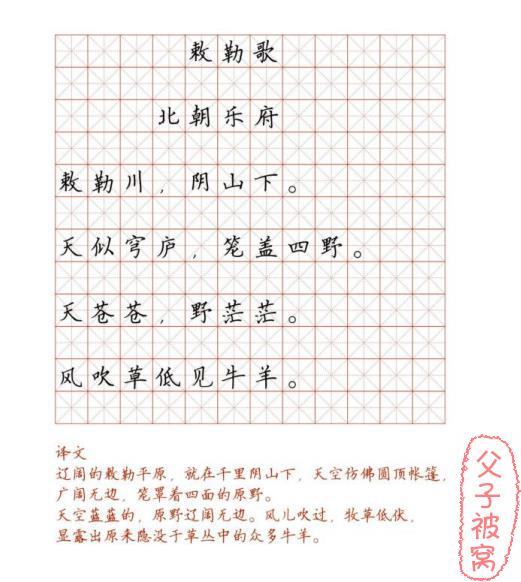 敕勒歌
北朝乐府
敕勒川，阴山下。
天似穹庐，笼盖四野。
天苍苍，野茫茫。
风吹草低见牛羊。
译文
辽阔的敕勒平原，就在千里阴山下，天空仿佛圆顶帐篷，
广阔无边，笼罩着四面的原野。
天空蓝蓝的，原野辽阔无边。风儿吹过，牧草低伏，
显露出原来隐没于草丛中的众多牛羊。
父子被窝